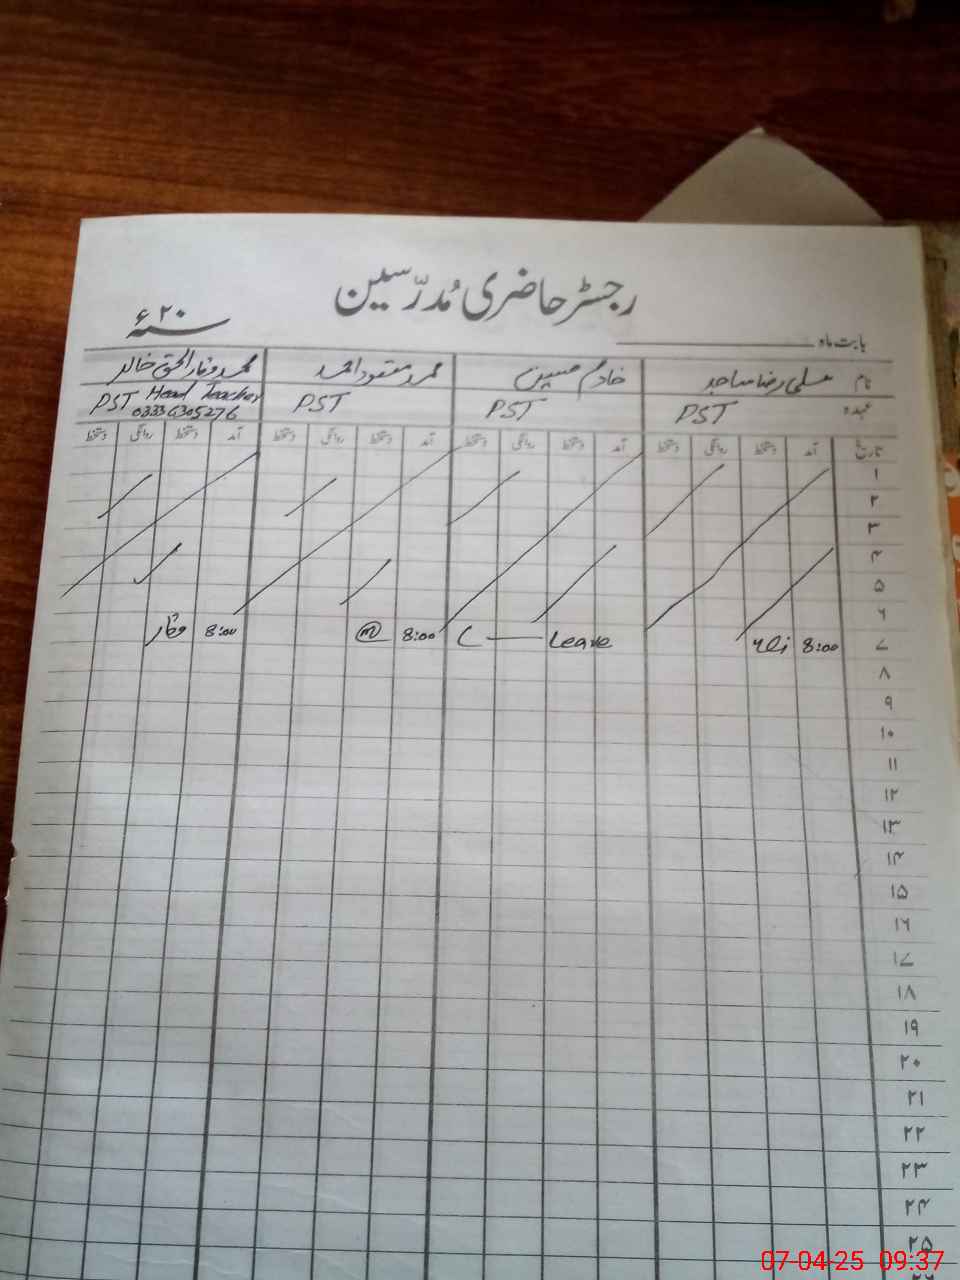 رجسٹر حاضری مُدرّسین
بابت ماہ
سنہ ۲۰ ء
نام علی رضا ساجد خادم حسین محمد مقصود احمد محمد وقار الحق خالد
عہدہ PST PST PST PST Head Teacher
03336305276
تاریخ آمد دستخط روانگی دستخط آمد دستخط روانگی دستخط آمد دستخط روانگی دستخط آمد دستخط روانگی دستخط
۱
۲
۳
۴
۵
۶
۷ 8:00 Leave 8:00 8:00 وقار
۸
۹
۱۰
۱۱
۱۲
۱۳
۱۴
۱۵
۱۶
۱۷
۱۸
۱۹
۲۰
۲۱
۲۲
۲۳
۲۴
۲۵
07-04-25 09:37